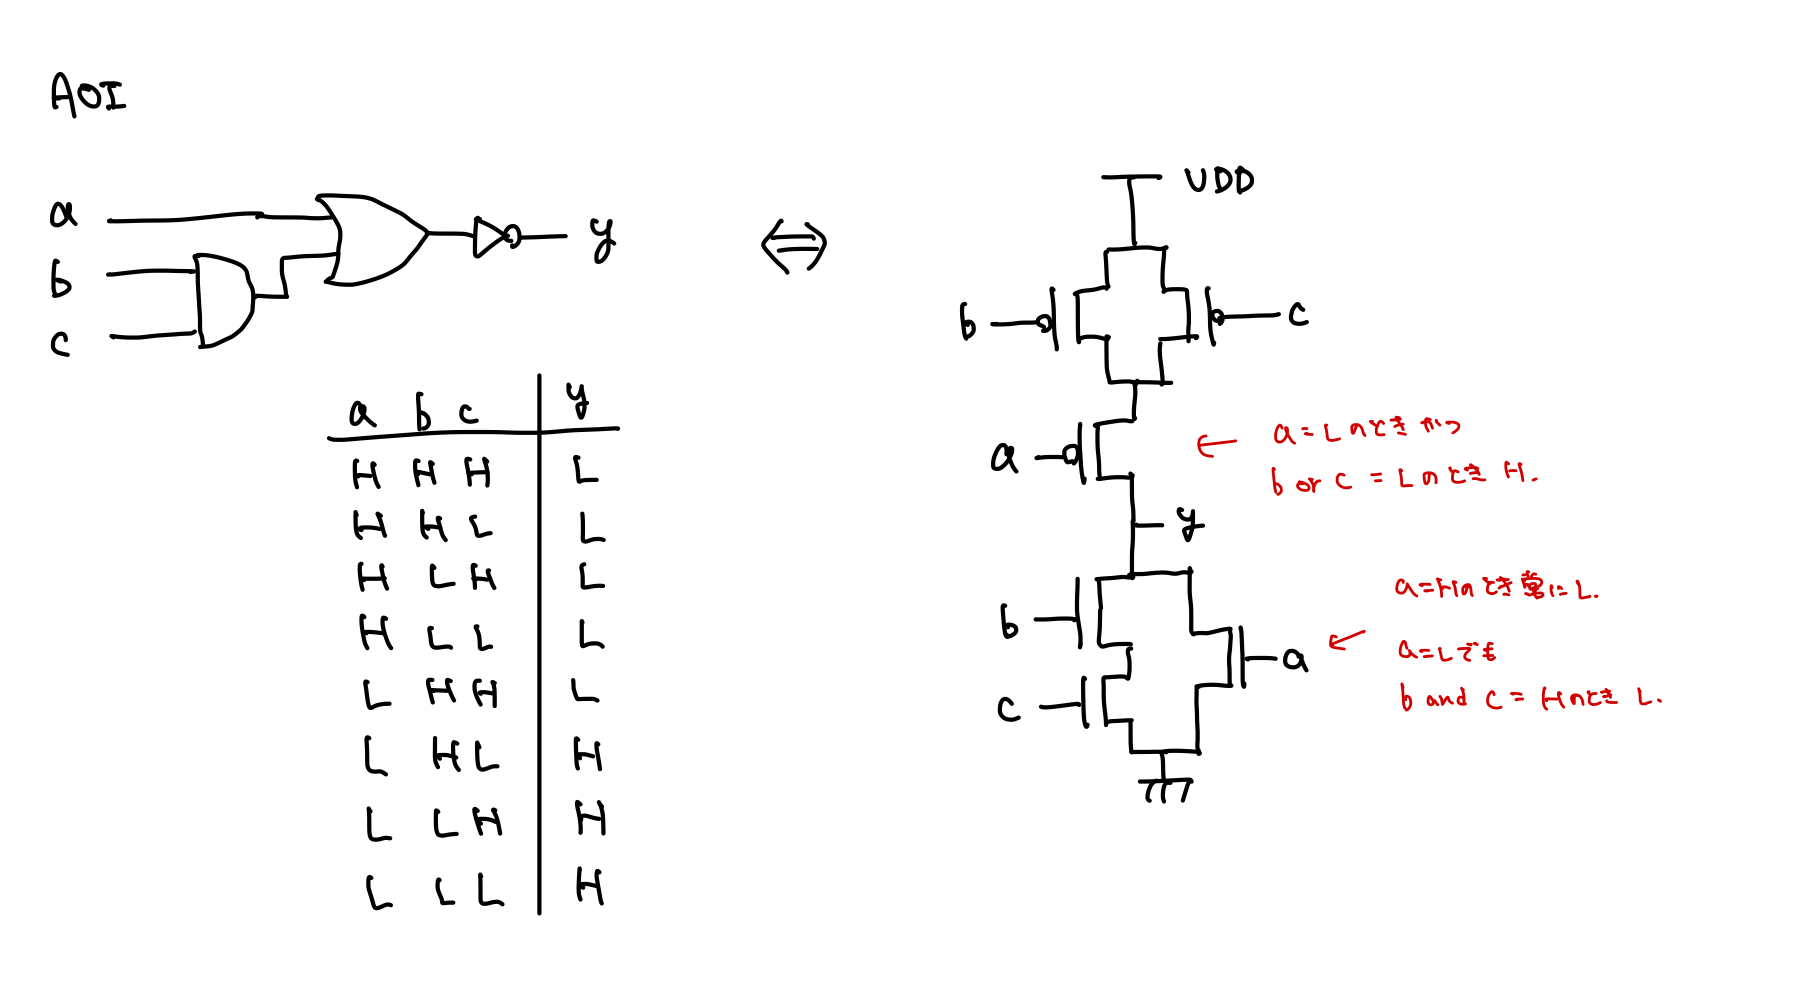 AOI
a
b
c
y
a b c y
H H H L
H H L L
H L H L
H L L L
L H H L
L H L H
L L H H
L L L H
VDD
b
c
a
y
b
c
a
a=Lのときかつ
b or c = Lのとき H.
a=Hのとき常にL.
a=Lでも
b and c = Hのとき L.